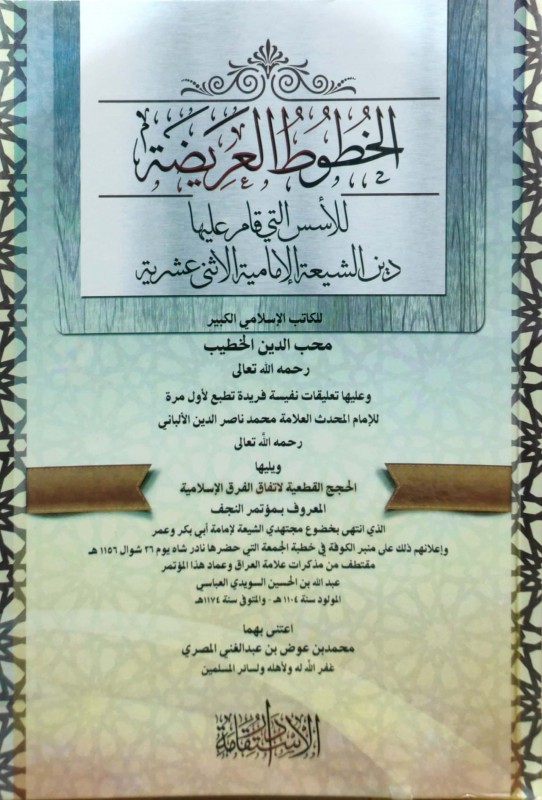 الخُطُوطُ العَرِيضَة
للأسس التي قام عليها
دين الشيعة الإمامية الاثنى عشرية
للكاتب الإسلامي الكبير
محب الدين الخطيب
رحمه الله تعالى
وعليها تعليقات نفيسة فريدة تطبع لأول مرة
للإمام المحدث العلامة محمد ناصر الدين الألباني
رحمه الله تعالى
ويليها
الحجج القطعية لاتفاق الفرق الإسلامية
المعروف بـمؤتمر النجف
الذي انتهى بخضوع مجتهدي الشيعة لإمامة أبي بكر وعمر
وإعلانهم ذلك على منبر الكوفة في خطبة الجمعة التي حضرها نادر شاه يوم ٢٦ شوال ١١٥٦ هـ
مقتطف من مذكرات علامة العراق وعماد هذا المؤتمر
عبد الله بن الحسين السويدي العباسي
المولود سنة ١١٠٤ هـ - والمتوفى سنة ١١٧٤هـ
اعتنى بهما
محمد بن عوض بن عبدالغني المصري
غفر الله له ولأهله ولسائر المسلمين
دار الاستقامة